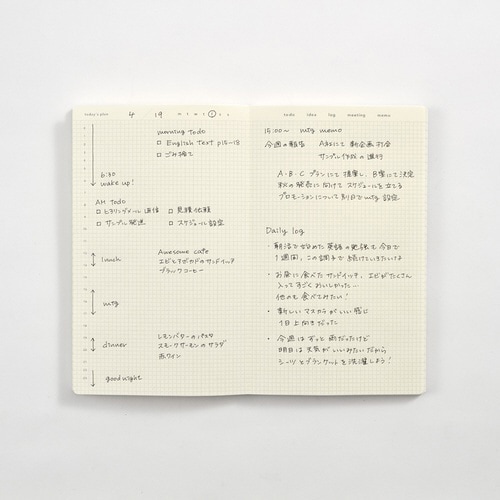 today's plan 4 19 m t w t f s s
morning todo
□ English text p15-18
□ ごみ捨て
6:30
wake up!
AM todo
□ ヒアリングメール返信 □ 見積依頼
□ サンプル発送 □ スケジュール設定
lunch
Awesome cafe
エビとアボカドのサンドイッチ
ブラックコーヒー
mtg
dinner
レモンバターのパスタ
スモークサーモンのサラダ
赤ワイン
good night
todo idea log meeting memo
15:00〜 mtg memo
今週の報告 A社にて 新企画打合
サンプル作成の進行
A・B・C プランにて 提案し、B案にて決定
秋の発売に向けて スケジュールを立てる
プロモーションについて 別日でmtg 設定
Daily log
・朝活で始めた 英語の勉強も 今日で
1週間。この調子で 続けていきたいけな
・お昼に食べた サンドイッチ、エビがたくさん
入ってすごくおいしかった…
他のも 食べてみたい！
・新しい マスカラが いい感じ
1日 上向きだった
・今週は ずっと 雨だったけど
明日は 天気が いいみたい だから
シーツと ブランケットを 洗濯しよう！